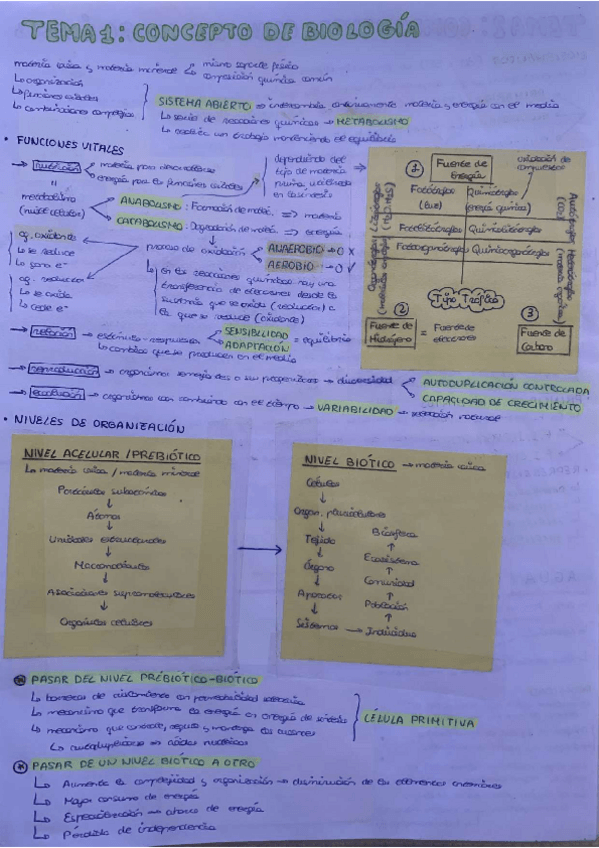 TEMA 1: CONCEPTO DE BIOLOGÍA
materia viva y materia mineral
mismo soporte físico
composición química común
↳ organización
↳ funciones vitales
↳ combinaciones complejas
SISTEMA ABIERTO ⇒ intercambia continuamente materia y energía con el medio
↳ serie de reacciones químicas → METABOLISMO
↳ un trabajo manteniendo el equilibrio
• FUNCIONES VITALES
→ nutrición
materia para desarrollarse
energía para las funciones vitales
dependiendo del
tipo de materia
prima utilizada
"
metabolismo
ANABOLISMO: Formación de moléc. ⇒ materia
CATABOLISMO: Degradación de moléc. ⇒ energía
ag. oxidante
↳ se reduce
↳ gana e⁻
ag. reductor
↳ se oxida
↳ cede e⁻
proceso de oxidación
ANAEROBIO → O X
AEROBIO → O ✓
↳ en las reacciones químicas hay una
transferencia de electrones desde la
sustancia que se oxida (reductor) a
la que se reduce (oxidante)
1 Fuente de
Energía
Fotótrofos
(luz)
Quimiótrofos
(energía química)
Fotolitótrofos
Quimiolitótrofos
Fotoorganótrofos
Quimioorganótrofos
Tipo Trófico
2
Fuente de
Hidrógeno
= Fuente de
electrones
3
Fuente de
Carbono
→ relación → estímulo-respuesta
SENSIBILIDAD
ADAPTACIÓN
= equilibrio
↳ cambios que se producen en el medio
→ reproducción → organismos semejantes a su progenitor → diversidad
AUTODUPLICACIÓN CONTROLADA
CAPACIDAD DE CRECIMIENTO
→ evolución → organismos van cambiando con el tiempo → VARIABILIDAD → selección natural
• NIVELES DE ORGANIZACIÓN
NIVEL ACELULAR / PREBIÓTICO
↳ materia viva / materia mineral
Partículas subatómicas
↓
Átomos
↓
Unidades estructurales
↓
Macromoléculas
↓
Asociaciones supramoleculares
↓
Orgánulos celulares
NIVEL BIÓTICO → materia viva
Células
↓
Organ. pluricelulares
↓
Tejido
↓
Órgano
↓
Aparatos
↓
Sistemas → Individuo
↑
Población
↑
Comunidad
↑
Ecosistema
↑
Biosfera
* PASAR DEL NIVEL PREBIÓTICO-BIÓTICO
↳ barreras de aislamiento con permeabilidad selectiva
↳ mecanismo que transforme la energía en energía de enlaces
↳ mecanismo que controle, regule y mantenga los avances
↳ autoduplicarse → ácidos nucleicos
CÉLULA PRIMITIVA
* PASAR DE UN NIVEL BIÓTICO A OTRO
↳ Aumenta la complejidad y organización → disminución de los elementos
↳ Mayor consumo de energía
↳ Especialización → ahorro de energía
↳ Pérdida de independencia